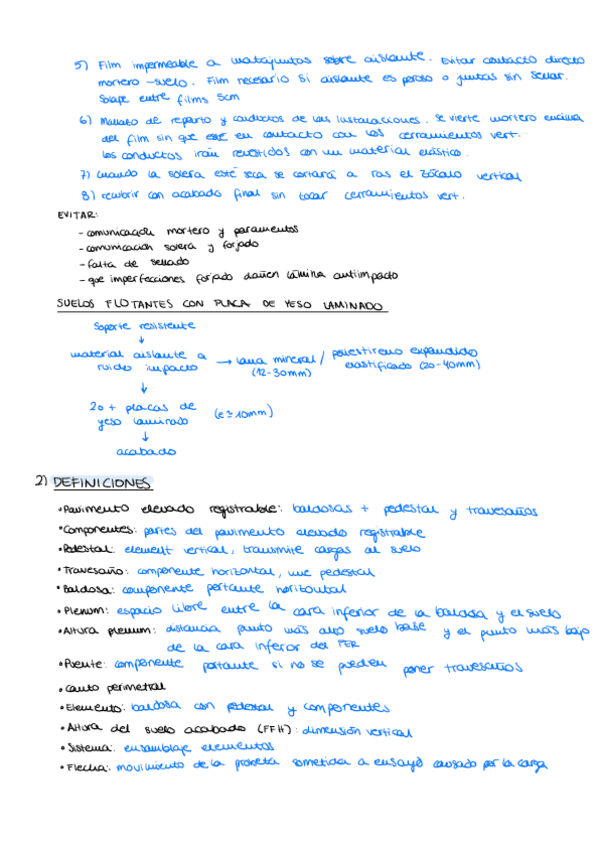 5) Film impermeable a matajuntas sobre aislante. Evitar contacto directo
mortero - suelo. Film necesario si aislante es poroso o juntas sin sellar.
Solape entre films 5cm
6) Mallazo de reparto y conductos de las instalaciones. Se vierte mortero encima
del film sin que esté en contacto con los cerramientos vert.
Los conductos irán revestidos con un material elástico.
7) Cuando la solera esté seca se cortará a ras el zócalo vertical
8) recubrir con acabado final sin tocar cerramientos vert.
EVITAR:
- comunicación mortero y paramentos
- comunicacion solera y forjado
- falta de sellado
- que imperfecciones forjado dañen lámina antiimpacto
SUELOS FLOTANTES CON PLACA DE YESO LAMINADO
Soporte resistente
↓
material aislante a ruido impacto → lana mineral (12-30mm) / poliestireno expandido elastificado (20-40mm)
↓
2 o + placas de yeso laminado (e ≥ 10mm)
↓
acabado
2) DEFINICIONES
• Pavimento elevado registrable: baldosas + pedestal y travesaños
• Componentes: partes del pavimento elevado registrable
• Pedestal: element vertical, transmite cargas al suelo
• Travesaño: componente horizontal, une pedestal
• Baldosa: componente portante horizontal
• Plenum: espacio libre entre la cara inferior de la baldosa y el suelo
• Altura plenum: distancia punto más alto suelo base y el punto más bajo
de la cara inferior del PER
• Puente: componente portante si no se pueden poner travesaños
• Canto perimetral
• Elemento: baldosa con pedestal y componentes
• Altura del suelo acabado (FFH): dimensión vertical
• Sistema: ensamblaje elementos
• Flecha: movimiento de la probeta sometida a ensayo causado por la carga